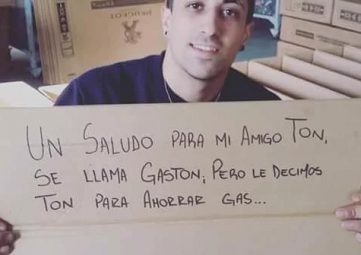 PEUGEOT
UN SALUDO PARA MI AMIGO TON,
SE LLAMA GASTON; PERO LE DECIMOS
TON PARA AHORRAR GAS...